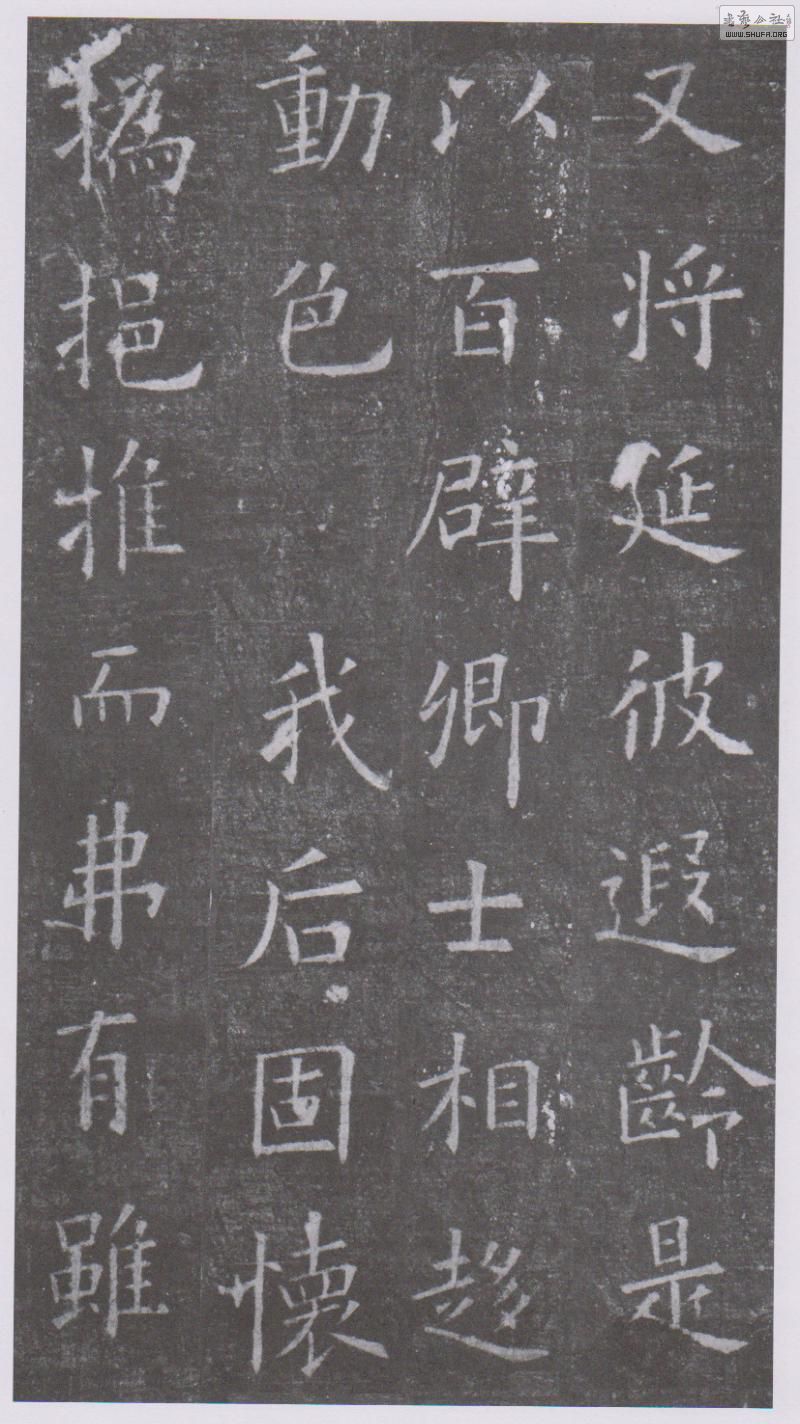 又将延彼遐齡是
以百辟卿士相趍
動色 我后固懷
撝挹推而弗有雖
書藝公社
WWW.SHUFA.ORG